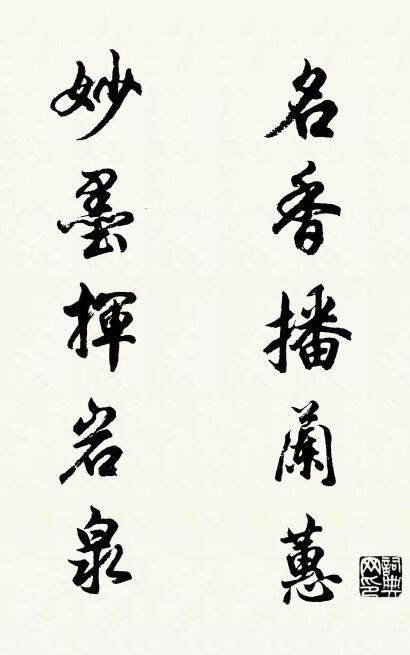 名香播蘭蕙
妙墨揮岩泉
詞典網印